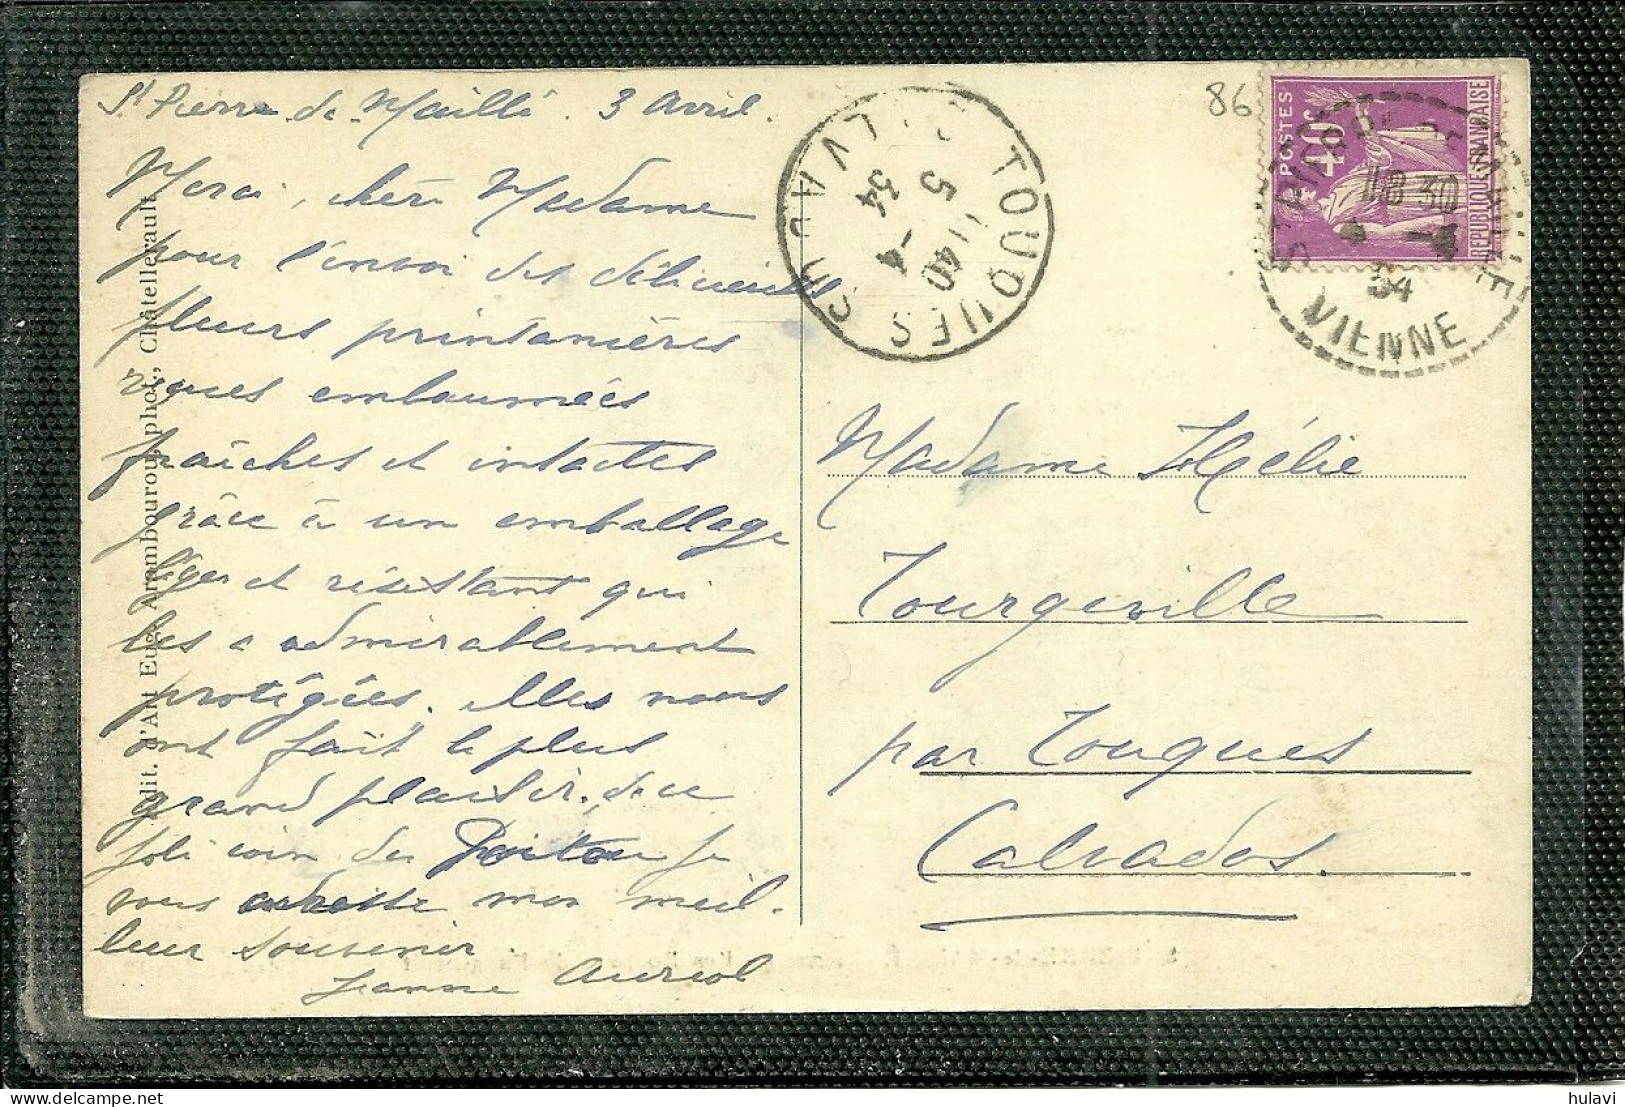 St Pierre de Maillé. 3 Avril.
Merci, chère Madame
pour l'envoi des délicieuses
fleurs printanières
reçues embaumées
fraîches et intactes
grâce à un emballage
léger et résistant qui
les a admirablement
protégées. Elles nous
ont fait le plus
grand plaisir. De ce
joli coin du Poitou je
vous adresse mon meil-
leur souvenir
Jeanne Auriol
Edit. d'Art Eug. Arambourou, phot., Châtellerault
TOUQUES CALVADOS
11 40
5 -4
34
86
POSTES
40c
REPUBLIQUE FRANÇAISE
ST PIERRE DE MAILLE
18 30
34
VIENNE
Madame Hélie
Tourgeville
par Touques
Calvados.
hulavi